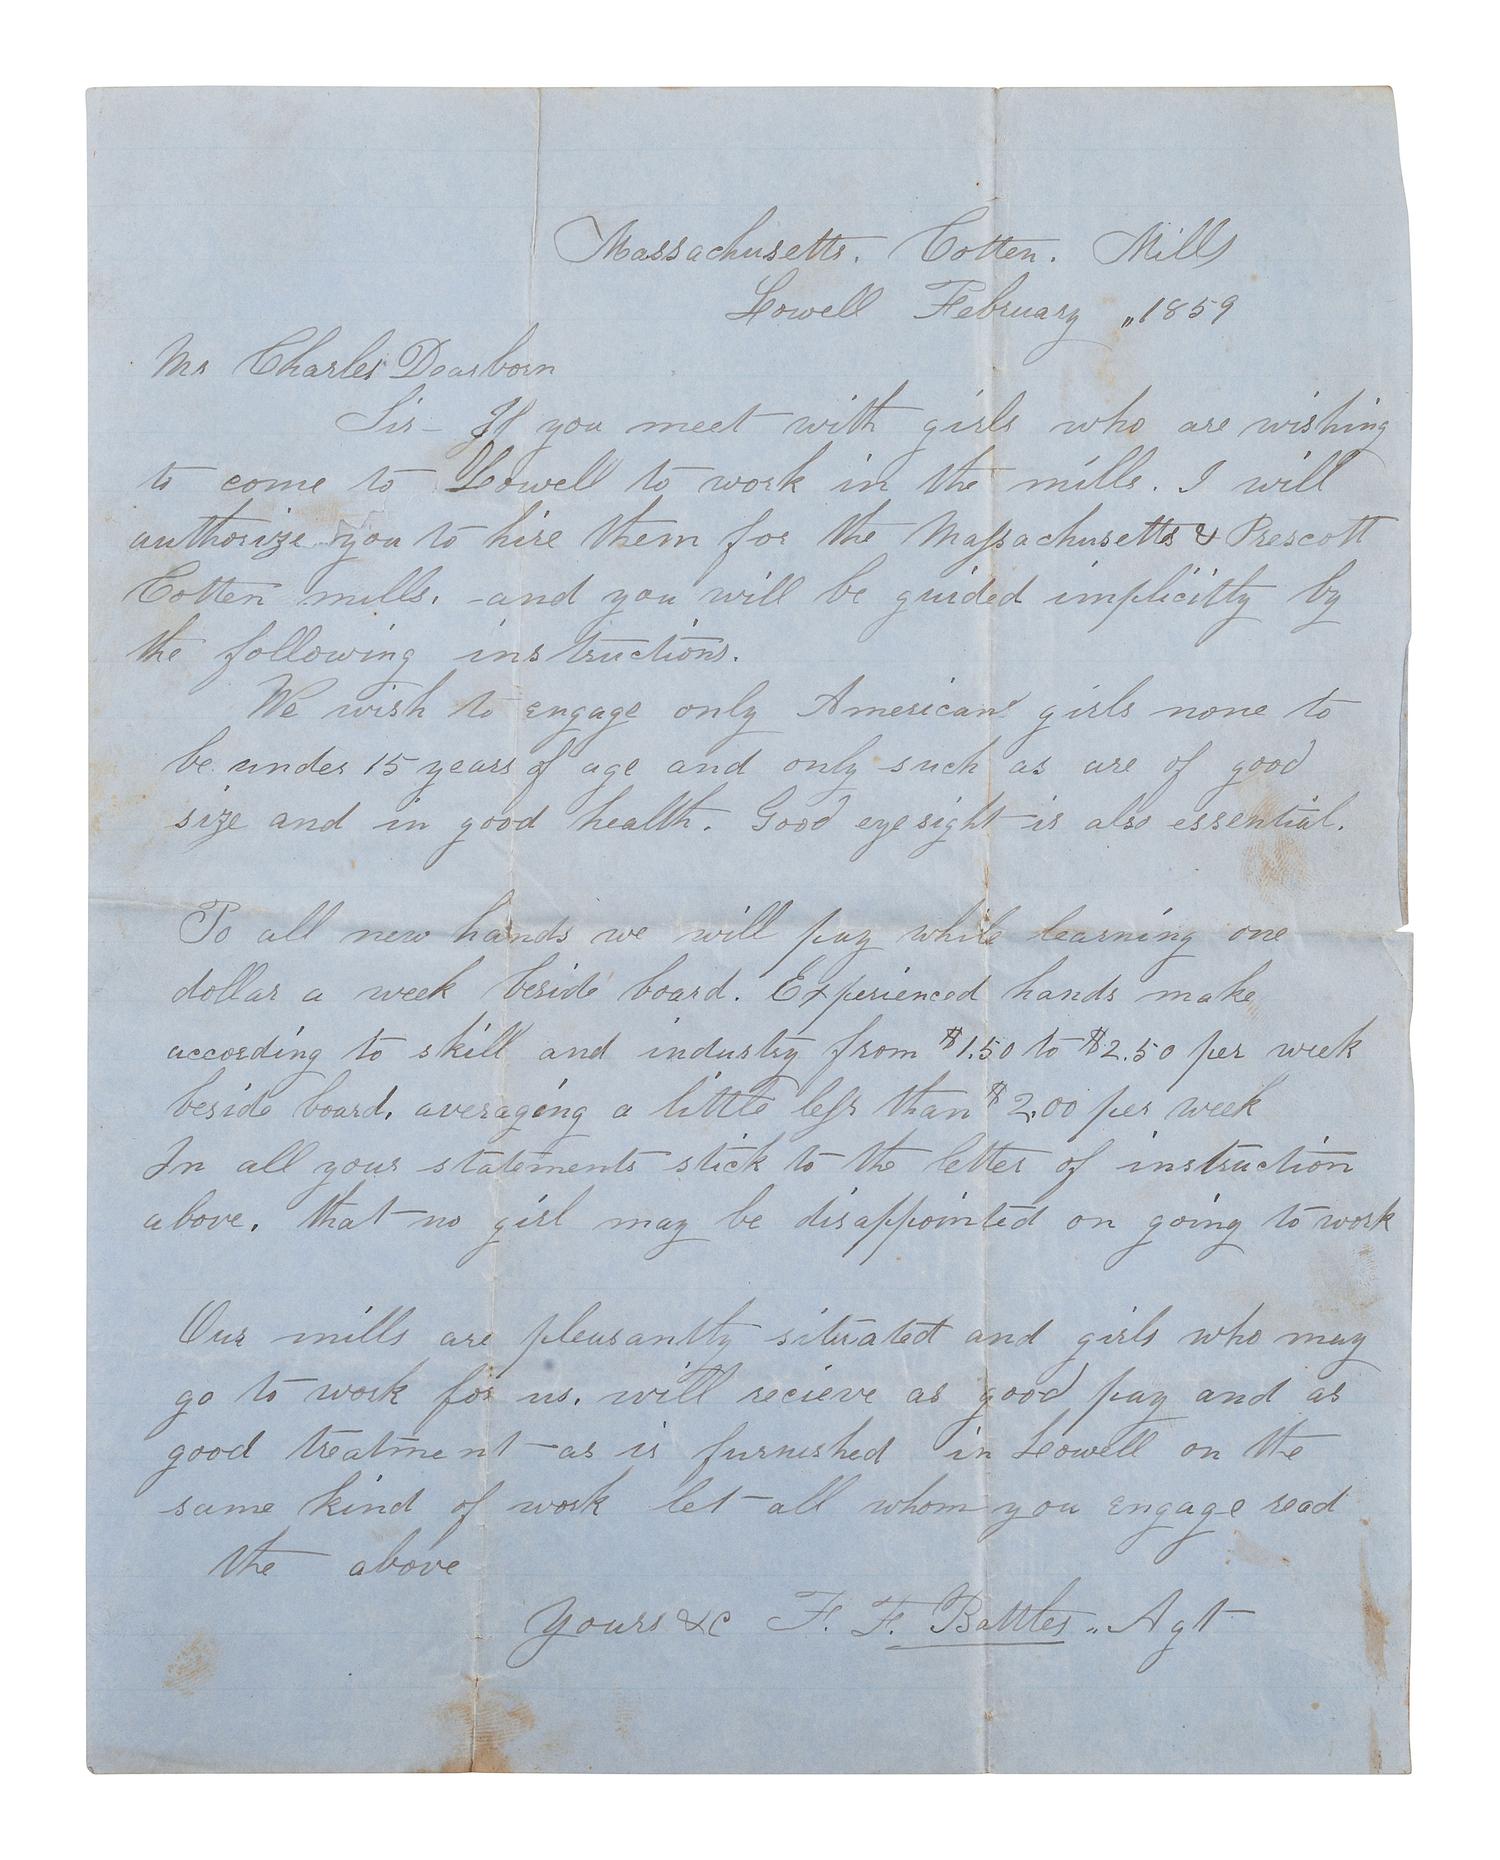 Massachusetts. Cotten. Mills
Lowell February „1859
Mr Charles Dearborn
Sir- If you meet with girls who are wishing
to come to Lowell to work in the mills. I will
authorize you to hire them for the Massachusetts & Prescott
Cotten mills. - and you will be guided implicitly by
the following instructions.
We wish to engage only American girls none to
be under 15 years of age and only such as are of good
size and in good health. Good eyesight is also essential.
To all new hands we will pay while learning one
dollar a week beside board. Experienced hands make
according to skill and industry from $1.50 to $2.50 per week
beside board. averaging a little less than $2.00 per week
In all your statements stick to the letter of instruction
above. that no girl may be disappointed on going to work
Our mills are pleasantly situated and girls who may
go to work for us. will recieve as good pay and as
good treatment as is furnished in Lowell on the
same kind of work let all whom you engage read
the above
Yours &c F. F. Battles „ Agt